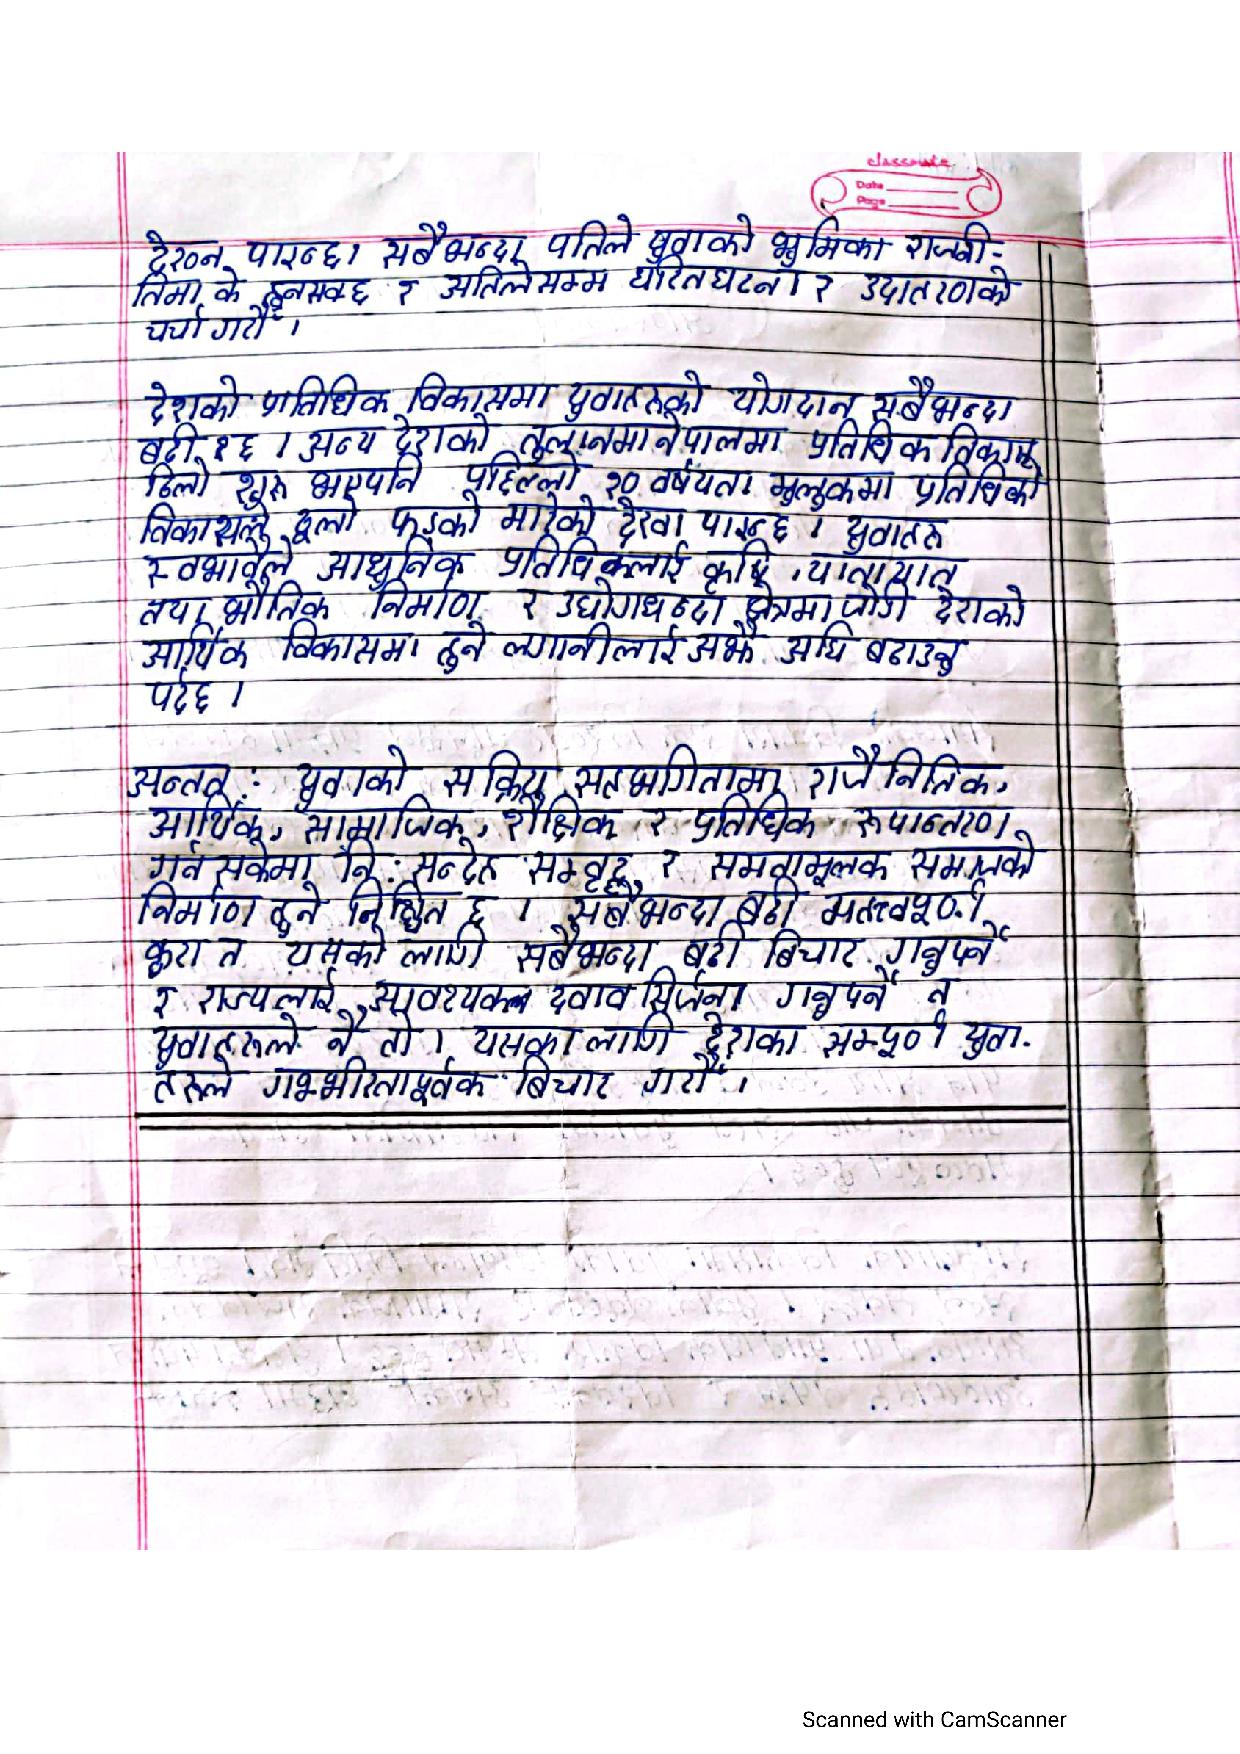 classmate
Date
Page
देख्न पाइन्छ। सबैभन्दा पहिले युवाको भूमिका राजनी-
तिमा के हुनसक्छ र अहिलेसम्म घटित घटना र उदाहरणको
चर्चा गरौं ।
देशको प्राविधिक विकासमा युवाहरूको योगदान सबैभन्दा
बढी रहेछ । अन्य देशको तुलनामा नेपालमा प्रविधिक विकास
ढिलो शुरु भएपनि पहिल्लो २० वर्षयता मुलुकमा प्रविधिको
विकासले ठूलो फड्को मारेको देख्न पाइन्छ । युवाहरू
स्वभावैले आधुनिक प्रविधिकलाई कृषि, यातायात
तथा भौतिक निर्माण र उद्योगधन्दा क्षेत्रमा जोडी देशको
आर्थिक विकासमा हुने लगानीलाई अझै अघि बढाउनु
पर्दछ ।
अन्तत: युवाको सक्रिय सहभागितामा राजैनितिक,
आर्थिक, सामाजिक, शैक्षिक र प्रविधिक रूपान्तरण
गर्न सकेमा नि:सन्देह सम्वृद्ध र समतामूलक समाजको
निर्माण हुने निश्चित छ । सबैभन्दा बढी महत्त्वपूर्ण
कुरा त यसको लागि सबैभन्दा बढी बिचार गर्नुपर्ने
र राज्यलाई आवश्यक दवाव सिर्जना गर्नुपर्ने त
युवाहरूले नै हो । यसका लागि देशका सम्पूर्ण युवा-
हरूले गम्भीरतापूर्वक बिचार गरौं ।
Scanned with CamScanner